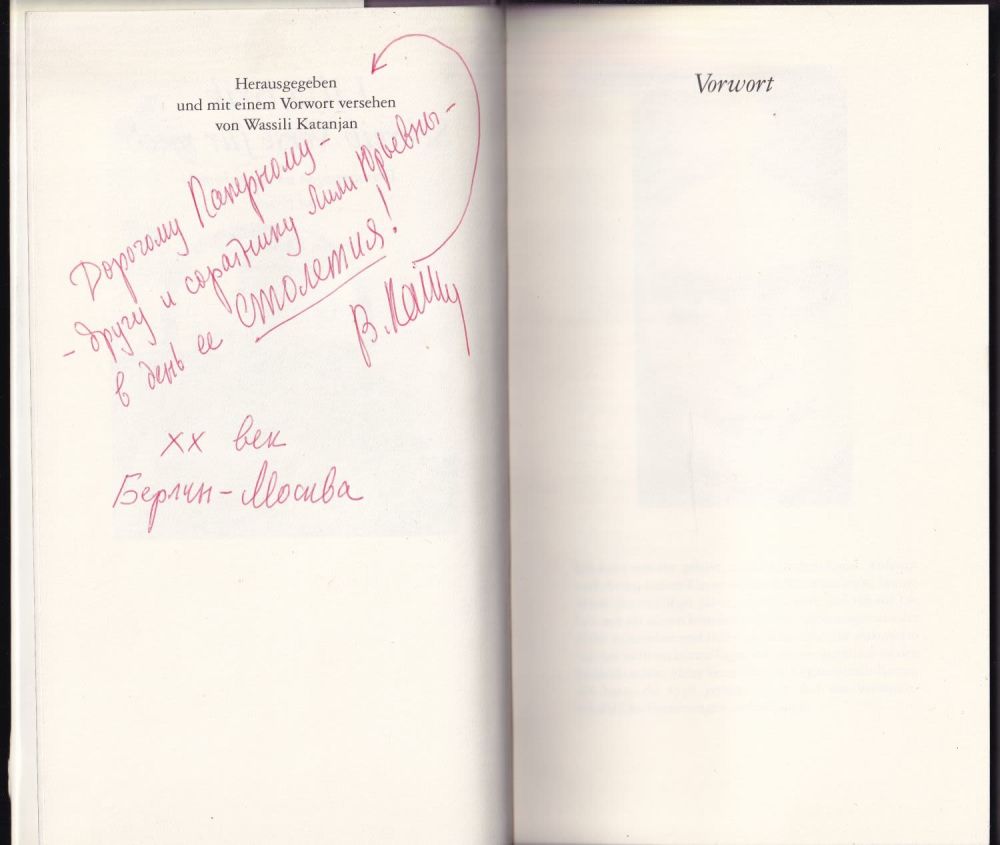 Herausgegeben
und mit einem Vorwort versehen
von Wassili Katanjan
Дорогому Паперному -
- другу и соратнику Лили Юрьевны -
в день ее столетия!
В. Катан
XX век
Берлин - Москва
Vorwort